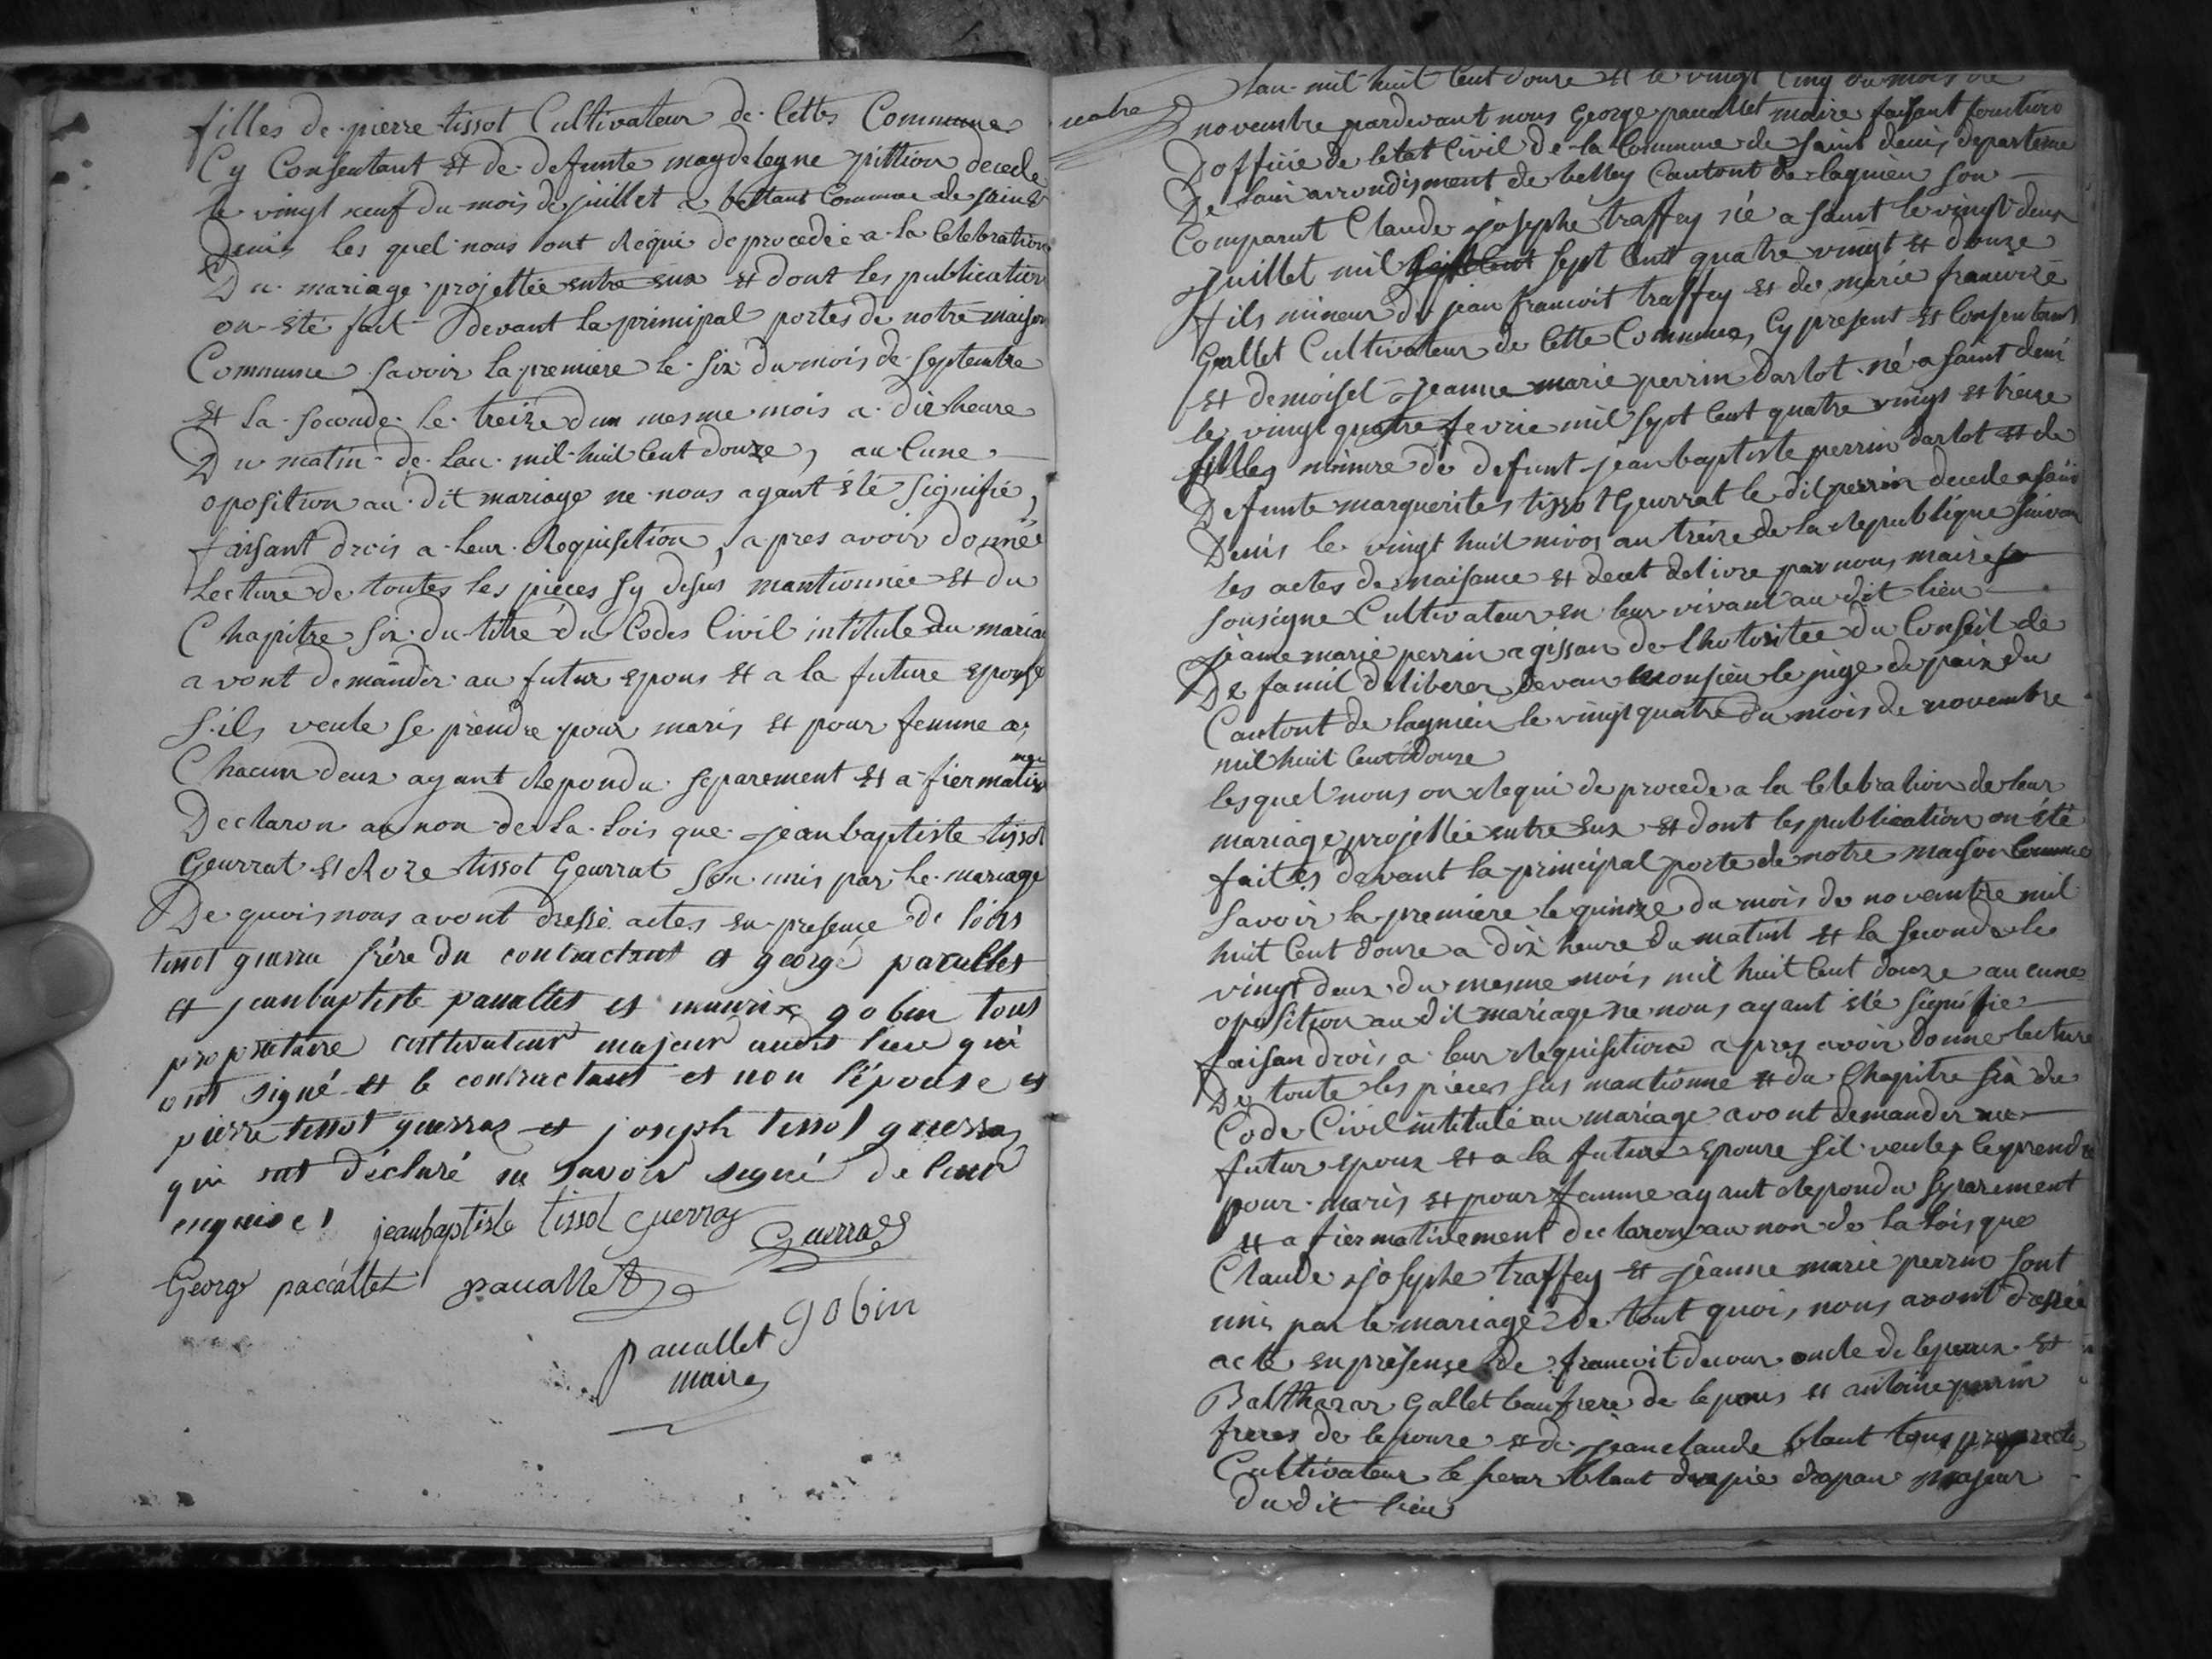 filles de pierre tissot Cultivateur de Cette Commune
Cy Consentant et de defunte magdelegne pittion decede
le vingt neuf du mois de juillet a bettant Commune de saint
Denis les quel nous ont Requi de procedée a la Celebration
Du mariage projettée entre eux et dont les publication
on été fait devant la principal portes de notre maison
Commune savoir la premiere le six du mois de septembre
et la seconde le treize dun mesme mois a dix heure
Du matin de lan mil huit Cent douze, au Cune
oposition au dit mariage ne nous ayant été signifié,
faisant drois a leur Requisition, a pres avoir donné
Lecture de toutes les pièces sy desus mantionnée et du
Chapitre six du titre du Codes Civil intitule du mariag
a vont demander au futur epous et a la future epouse
s'ils veule se prendre pour maris et pour femme a
Chacun deux ayant Repondu separement et a fiermative
men
Declaron au non de la Lois que jean baptiste tissot
Geurrat et Roze tissot Geurrat son unis par le mariage
De quois nous avont dressé actes en presence de lois
tissot guerra frère du contractant et george pacallet
et jean baptiste pacallet et maurix gobin tous
propriétaire cultivateur majeur audit lieu qui
ont signé et le contractant et non l'épouse et
pierre tissot guerras et joseph tissot guerras
qui ont déclaré ne savoir signé de leur
enquise
jeanbaptiste tissot Guerras Guerras
George paccallet pacallet
gobin
pacallet
maire
Lan mil huit Cent douze et le vingt Cinq du mois de
novembre pardevant nous George pacallet maire faisant fonction
Dofficié de letat Civil de la Commune de saint denis departeme
De lain arrondisment de belley Cantont de lagnieu son
Comparut Claude josephe traffey né a saint le vingt deux
juillet mil sept Cent quatre vingt et douze
fils mineur de jean francoit traffey et de marie francoize
Gallet Cultivateur de Cette Commune, Cy present et Consentant
et demoisel jeanne marie perrin darlot né a saint deni
le vingt quatre fevrie mil sept Cent quatre vings et treize
filles mineure de defunt jean baptiste perrin darlot et de
Defunte marguerites tissot Geurrat le dit perrin decede a sain
Denis le vingt huit nivos an treize de la Republique suivan
les actes de naisance et decet delivre par nous maire
sousigne Cultivateur en leur vivant au dit lieu
jeane marie perrin agissan de lhotoritee du Conseil de
De famil deliberer devan monsieu le juge de paix du
Cantont de lagnieu le vingt quatre du mois de novembre
mil huit Cent douze
lesquel nous on Requi de procede a la Celebration de leur
mariage projettée entre eux et dont les publication on été
faites devant la principal porte de notre maison Comme
savoir la premiere le quinze du mois de novembre mil
huit Cent douze a dix heure du matint et la seconde le
vingt deux du mesme mois mil huit Cent douze au cune
oposition au dit mariage ne nous ayant été signifie
faisan drois a leur Requisition a pres avoir donne lecture
De toute les pieces sus mantionne et du Chapitre six du
Code Civil intitulé au mariage avont demander au
futur epoux et a la future epouse sil veules se prendre
pour maris et pour femme ayant Repondu separement
et a fiermativement declaron au non de la lois que
Claude josephe traffey et jeanne marie perrin sont
unis par le mariage De tout quois nous avont dressée
acte en présense de francoit decour oncle de lepoux et
Balthazar Gallet beaufrere de lepous et antoine perrin
freres de lepouse et de jean claude blant tous
Cultivateur le majeur
du dit lieu